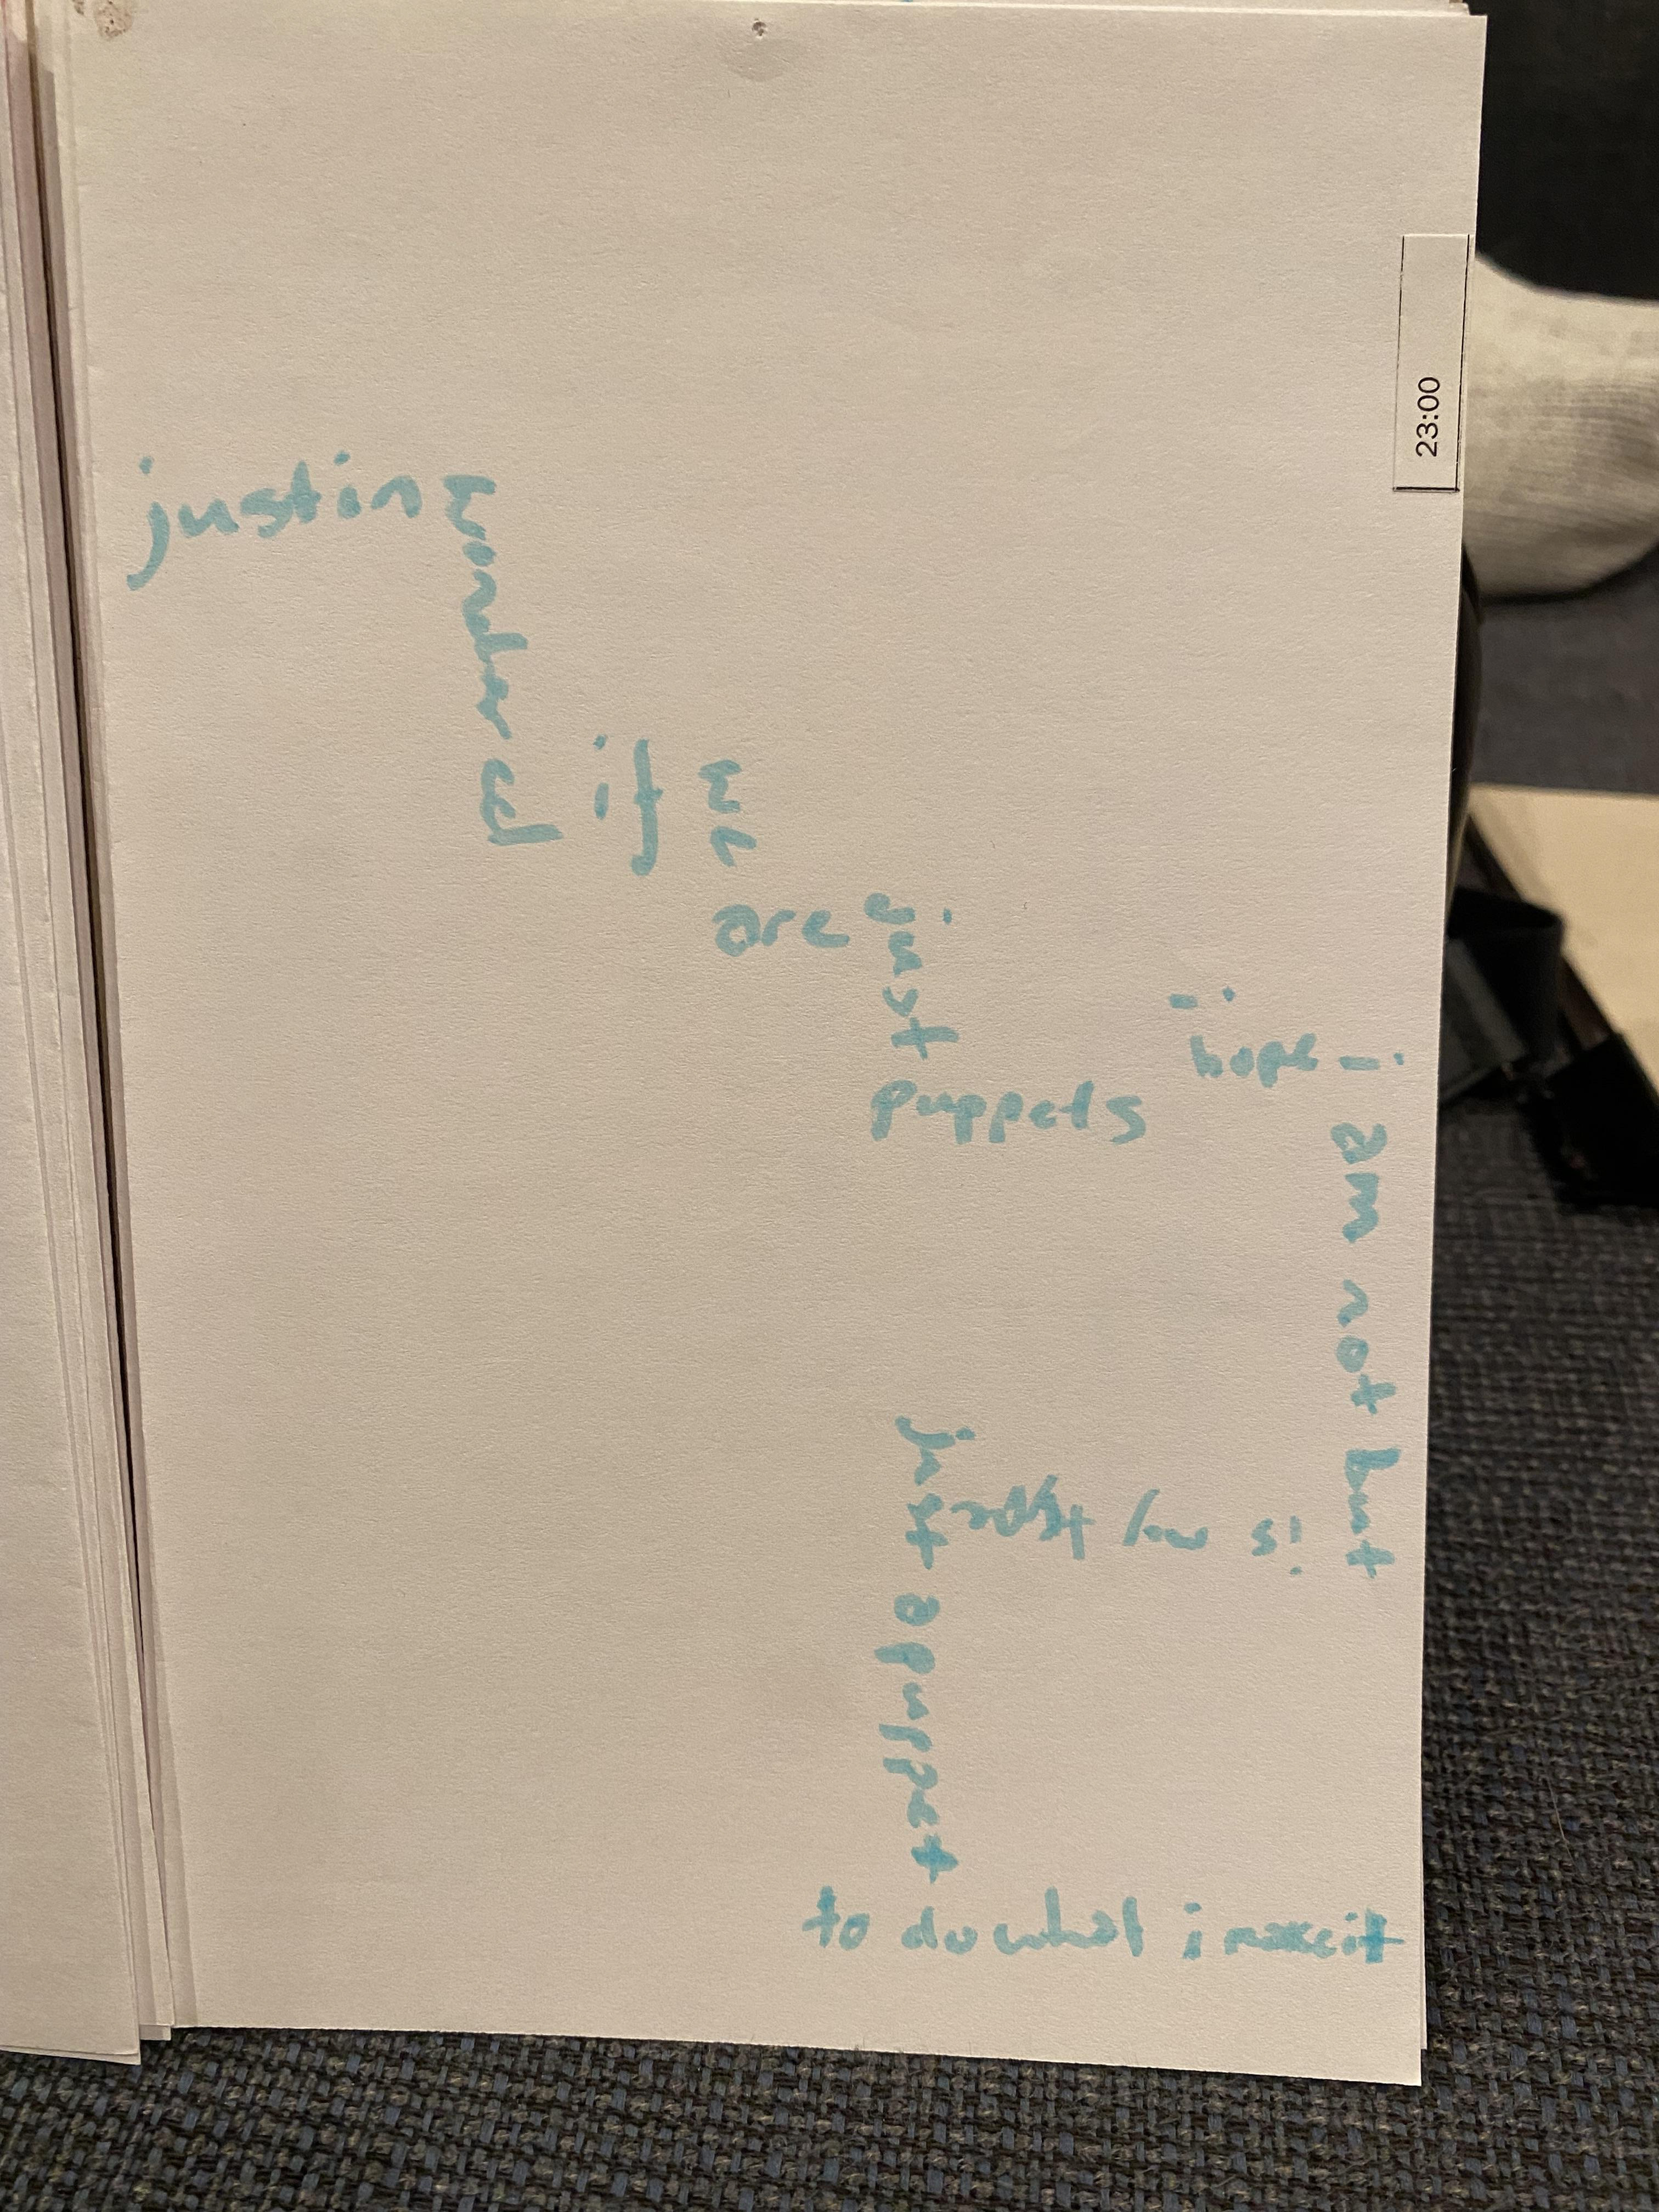 23:00
justin
wondered
if
we
are
just
puppets
i
hope
i
am not but
is my
just a puppet
to do what i make it